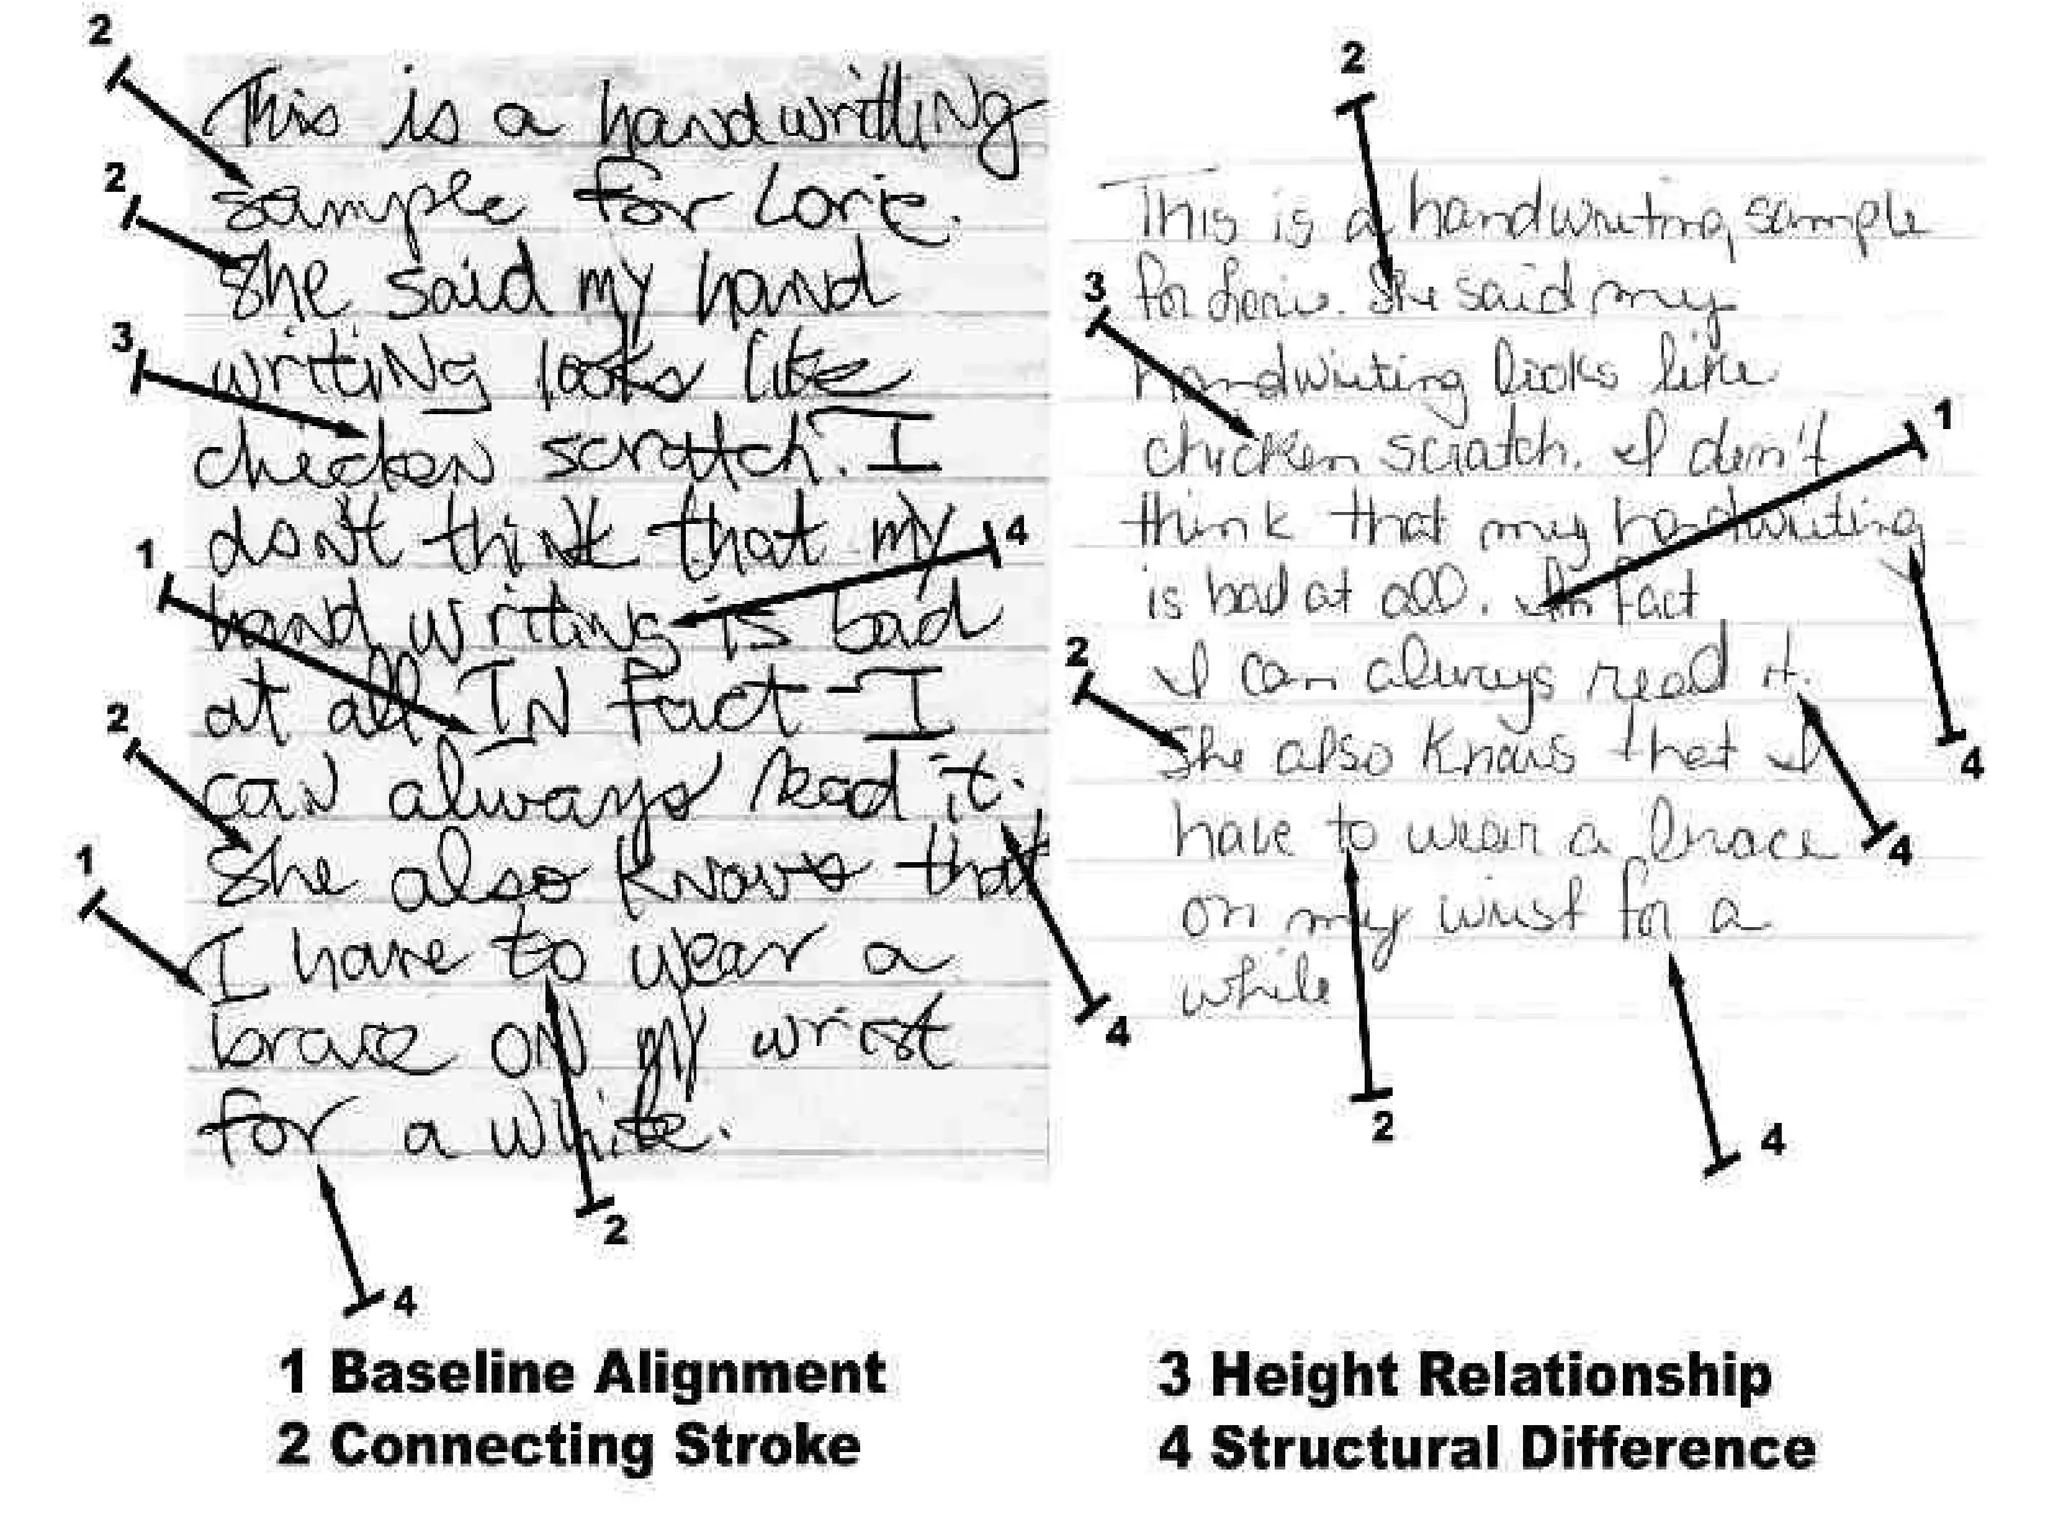 2
2
3
1
2
1
This is a handwritting
sample for Lorie.
She said my hand
writing looks like
chicken scratch. I
don't think that my
hand writing is bad
at all IN fact I
can always read it.
She also knows that
I have to wear a
brace on my wrist
for a while.
4
4
2
4
2
3
2
This is a handwriting sample
for Lorie. She said my
handwriting looks like
chicken scratch. I don't
think that my handwriting
is bad at all. In fact
I can always read it.
She also knows that I
have to wear a brace
on my wrist for a
while
1
4
4
2
4
1 Baseline Alignment
2 Connecting Stroke
3 Height Relationship
4 Structural Difference